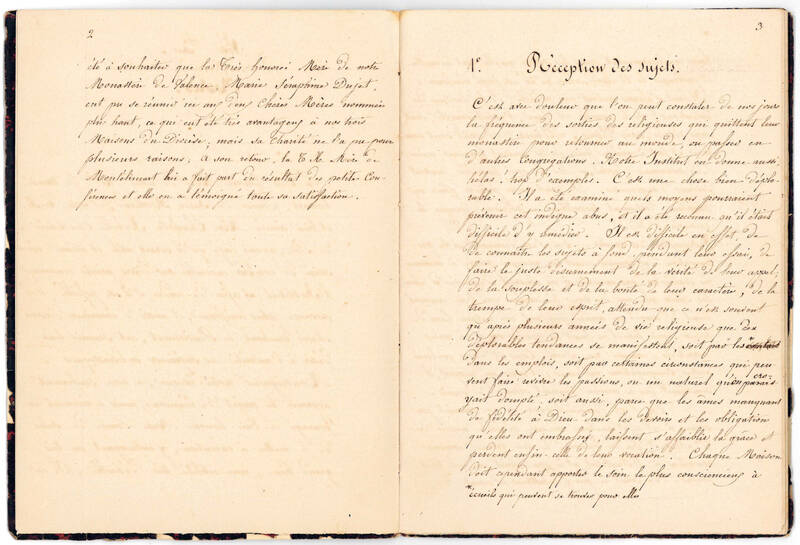 2
été à souhaiter que la Très honorée Mère de notre
Monastère de Valence, Marie Séraphine Dujet,
eut pu se réunir ici aux deux Chères Mères nommées
plus haut, ce qui eut été très avantageux à nos trois
Maisons du Diocèse, mais sa Charité ne l'a pu pour
plusieurs raisons. A son retour, la T. H. Mère de
Montélimart lui a fait part du résultat des petite Con-
férences et elle en a témoigné toute sa satisfaction.
3
1º Réception des sujets.
C'est avec douleur que l'on peut constater de nos jours
la fréquence des sorties des religieuses qui quittent leur
monastère pour retourner au monde, ou passer en
d'autres Congrégations. Notre Institut en donne aussi
hélas! trop d'exemples. C'est une chose bien déplo-
rable. Il a été examiné quels moyens pourraient
prévenir cet indigne abus, et il a été reconnu qu'il était
difficile d'y remédier. Il est difficile en effet, de
de connaître les sujets à fond, pendant leur essai, de
faire le juste discernement de la vérité de leur appel,
de la souplesse et de la bonté de leur caractère, de la
trempe de leur esprit, attendu que ce n'est souvent
qu'après plusieurs années de vie religieuse que ces
déplorables tendances se manifestent, soit par les
dans les emplois, soit par certaines circonstances qui peu-
vent faire revivre les passions, ou un naturel qu'on cro-
yait dompté, soit aussi, parce que les âmes manquant
de fidélité à Dieu dans les devoirs et les obligation
qu'elles ont embrassés, laissent s'affaiblir la grâce et
perdent enfin celle de leur vocation. Chaque Maison
doit cependant apporter le soin le plus consciencieux à
écueils qui peuvent se trouver pour elles